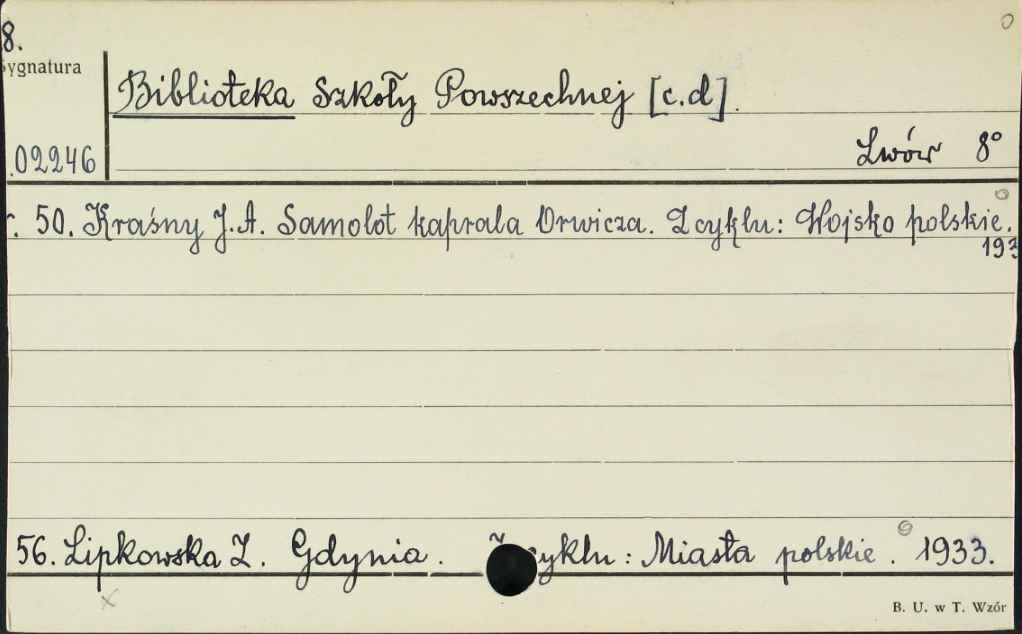 8.
Sygnatura
Biblioteka Szkoły Powszechnej [c.d].
02246
Lwów 8°
50. Kraśny J.A. Samolot kaprala Orwicza. Z cyklu: Wojsko polskie.
193
56. Lipkowska Z. Gdynia. Z cyklu: Miasta polskie. 1933.
B. U. w T. Wzór